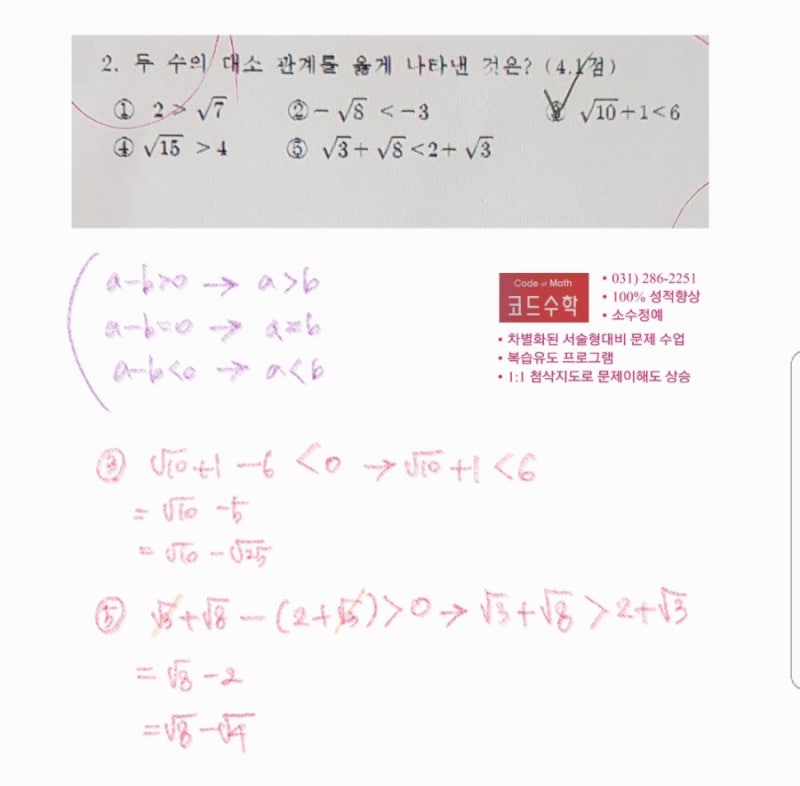 2. 두 수의 대소 관계를 옳게 나타낸 것은? (4.1점)
① 2 > √7 ② -√8 < -3 ③ √10+1<6
④ √15 > 4 ⑤ √3+√8<2+√3
a-b>0 → a>b
a-b=0 → a=b
a-b<0 → a<b
Code of Math
코드수학
• 031) 286-2251
• 100% 성적향상
• 소수정예
• 차별화된 서술형대비 문제 수업
• 복습유도 프로그램
• 1:1 첨삭지도로 문제이해도 상승
③ √10+1-6 <0 → √10+1<6
= √10-5
= √10-√25
⑤ √3+√8-(2+√3)>0 → √3+√8>2+√3
= √8-2
= √8-√4